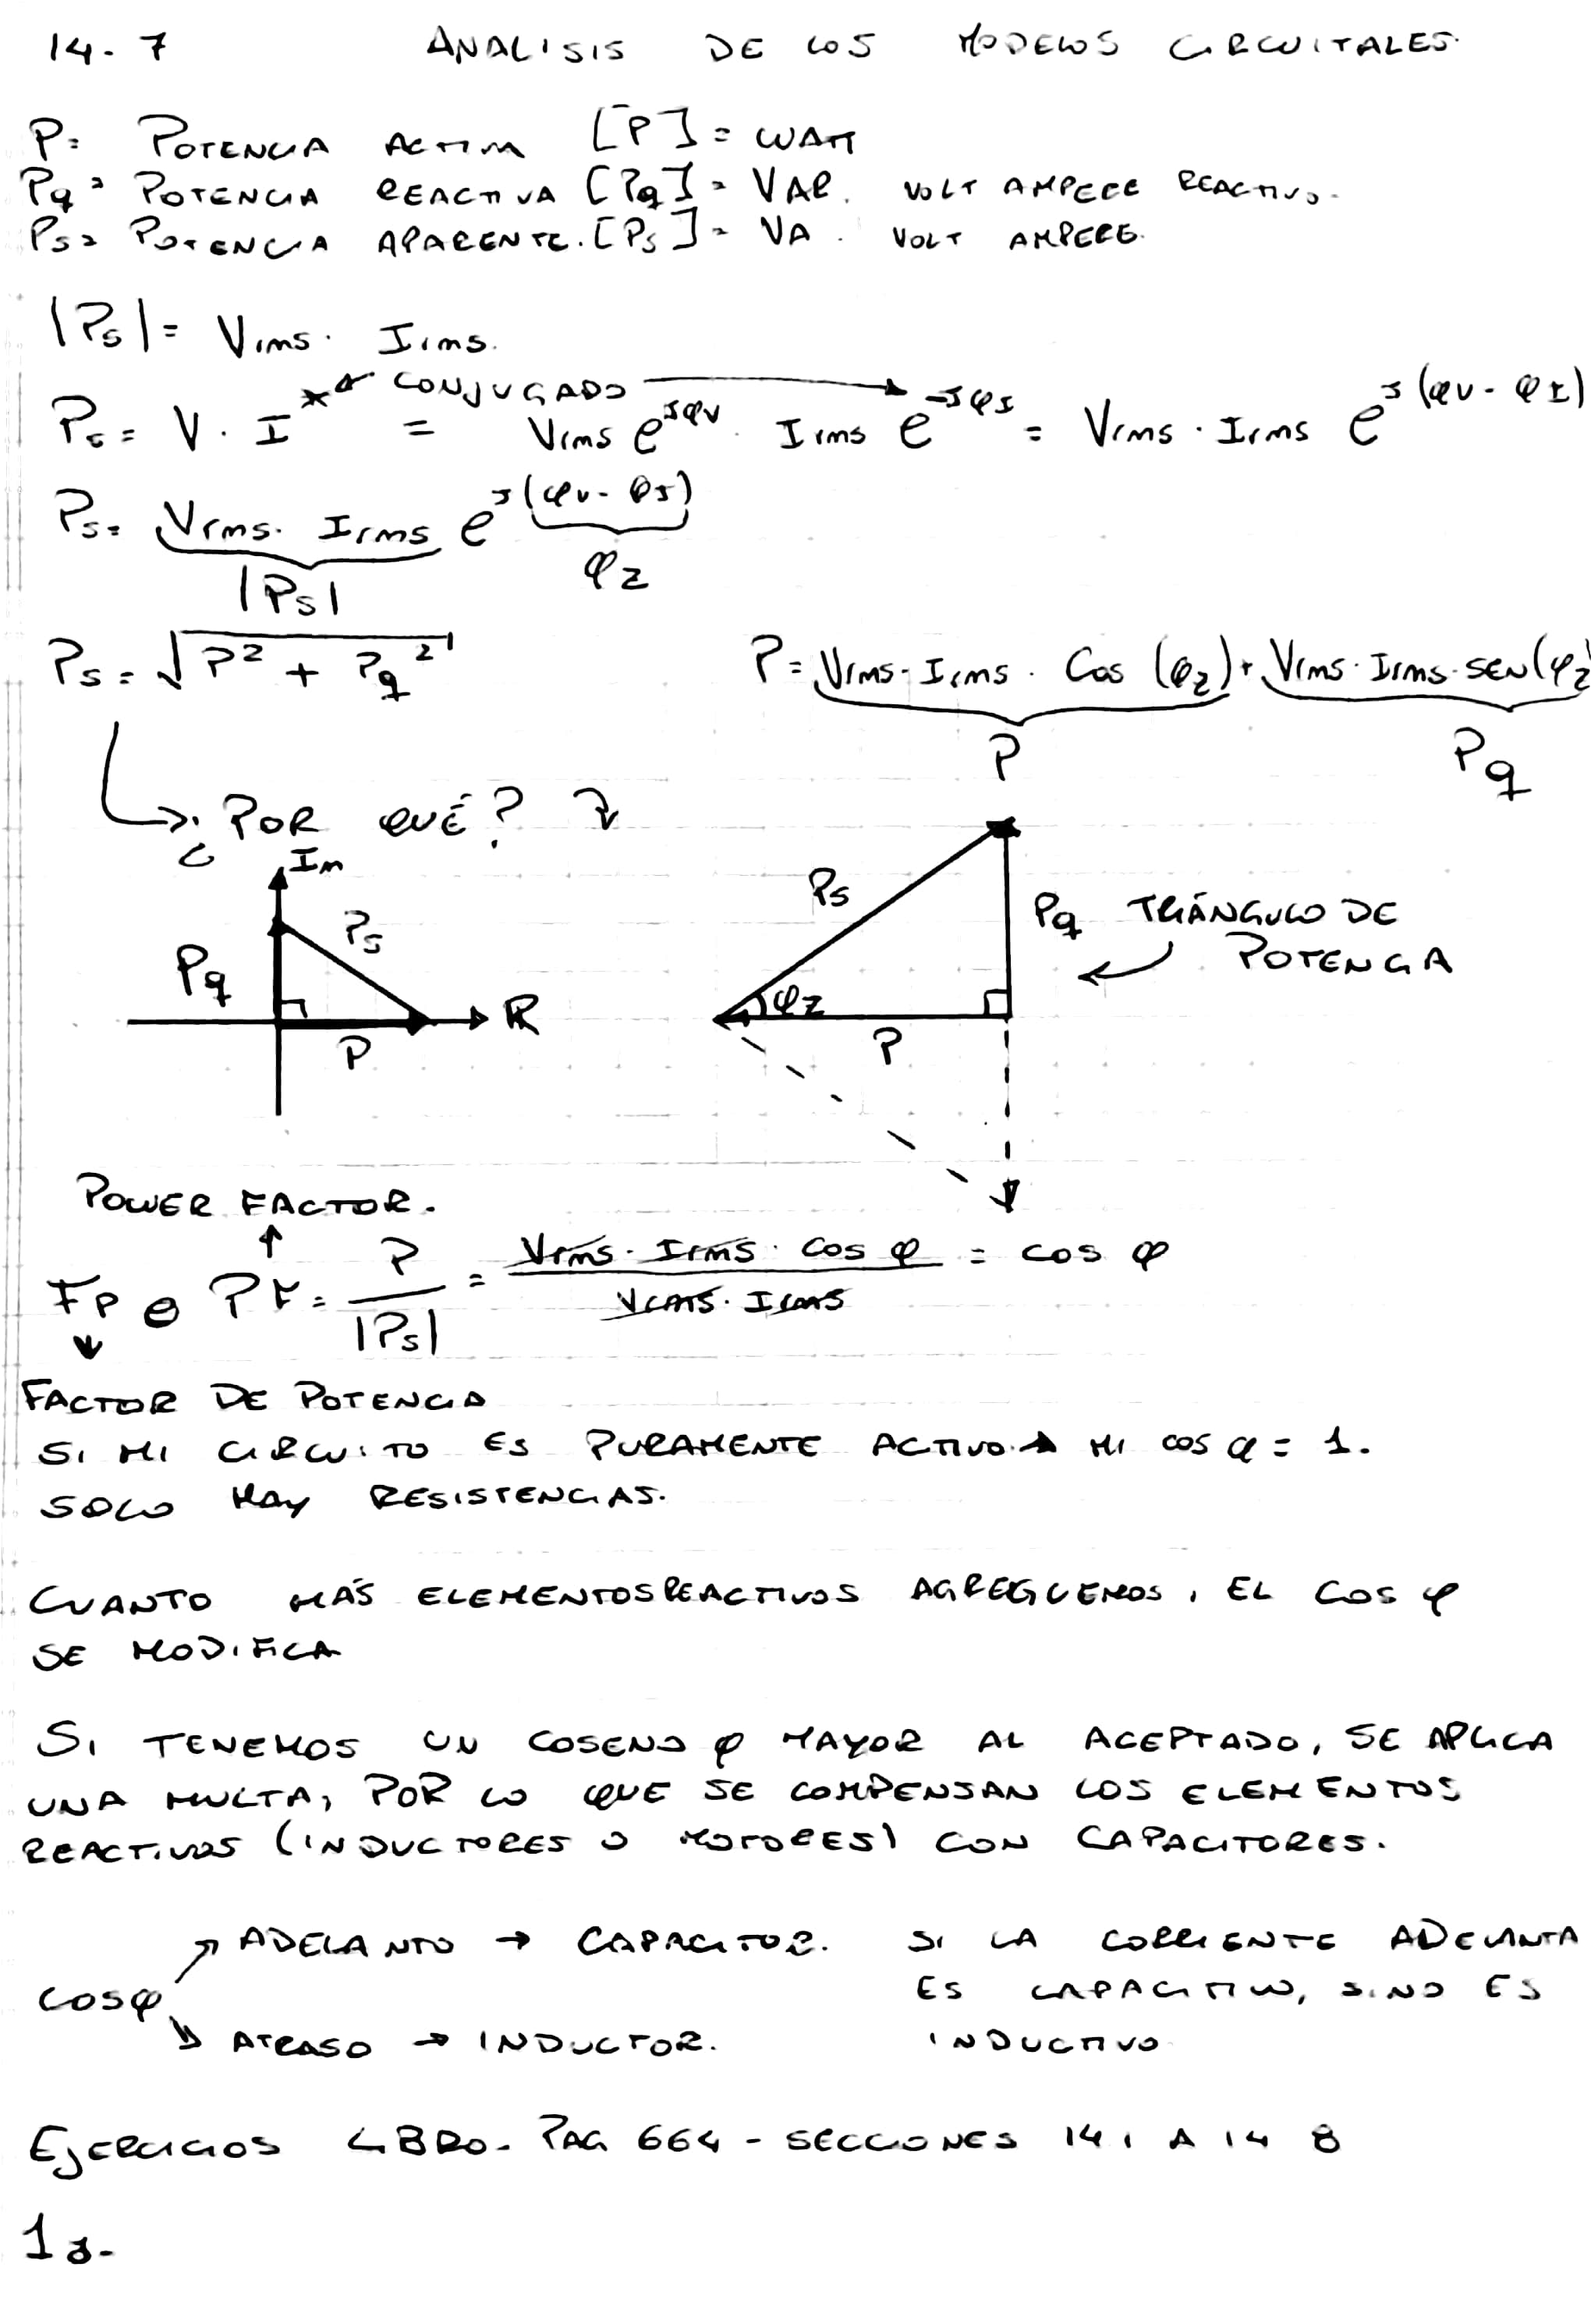 14.7 ANALISIS DE LOS MODELOS CIRCUITALES.
P= POTENCIA ACTIVA [P] = WATT
Pq = POTENCIA REACTIVA [Pq] = VAR. VOLT AMPERE REACTIVO.
Ps= POTENCIA APARENTE. [Ps] = VA. VOLT AMPERE.
|Ps| = Vrms. Irms.
CONJUGADO
Ps = V . I* = Vrms e^jφv . Irms e^-jφI = Vrms . Irms e^j(φv - φI)
Ps = Vrms. Irms e^j(φv - φI)
|Ps| φz
Ps = √P² + Pq² P = Vrms. Irms . Cos (φz) + Vrms. Irms. SEN(φz
P Pq
¿POR QUÉ?
Im
Ps
Pq
R
P
Ps
Pq
φz
P
TRIÁNGULO DE
POTENCIA
POWER FACTOR.
Fp o PF = P/|Ps| = Vrms. Irms. cos φ / Vrms. Irms = cos φ
FACTOR DE POTENCIA
SI MI CIRCUITO ES PURAMENTE ACTIVO → MI cos φ = 1.
SOLO HAY RESISTENCIAS.
CUANTO MÁS ELEMENTOS REACTIVOS AGREGUEMOS, EL COS φ
SE MODIFICA
SI TENEMOS UN COSENO φ MAYOR AL ACEPTADO, SE APLICA
UNA MULTA, POR LO QUE SE COMPENSAN LOS ELEMENTOS
REACTIVOS (INDUCTORES O MOTORES) CON CAPACITORES.
ADELANTO → CAPACITOR. SI LA CORRIENTE ADELANTA
COSφ ES CAPACITIVO, SINO ES
ATRASO → INDUCTOR. INDUCTIVO
EJERCICIOS LIBRO. PAG 664 - SECCIONES 14 1 A 14 8
1a-